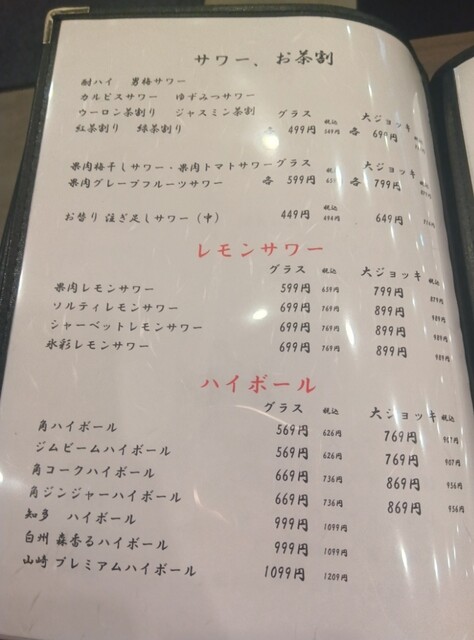 サワー、お茶割
酎ハイ 男梅サワー
カルピスサワー ゆずみつサワー
ウーロン茶割り ジャスミン茶割 グラス 税込 大ジョッキ 税込
紅茶割り 緑茶割り 各 499円 549円 各 699円
果肉梅干しサワー・果肉トマトサワー グラス 税込 大ジョッキ 税込
果肉グレープフルーツサワー 各 599円 各 799円
お替り 注ぎ足しサワー（中） 449円 494円 649円
レモンサワー
グラス 税込 大ジョッキ 税込
果肉レモンサワー 599円 659円 799円 879円
ソルティレモンサワー 699円 769円 899円 989円
シャーベットレモンサワー 699円 769円 899円 989円
氷彩レモンサワー 699円 769円 899円 989円
ハイボール
グラス 税込 大ジョッキ 税込
角ハイボール 569円 626円 769円
ジムビームハイボール 569円 626円 769円
角コークハイボール 669円 736円 869円 956円
角ジンジャーハイボール 669円 736円 869円 956円
知多 ハイボール 999円 1099円
白州 森香るハイボール 999円 1099円
山崎 プレミアムハイボール 1099円 1209円